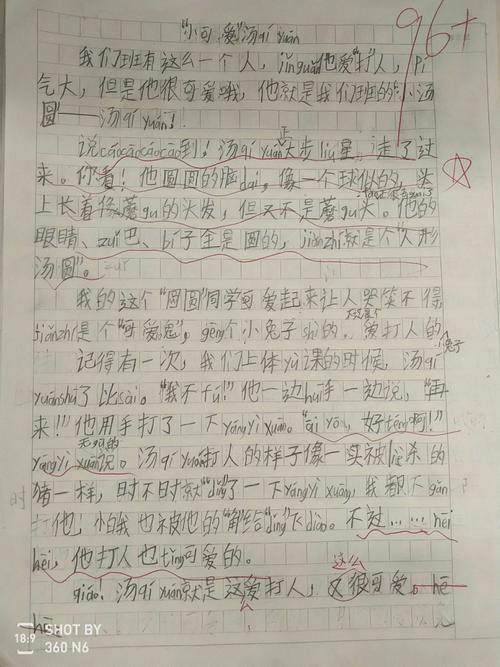 “小可爱”汤qí yuán
96+
我们班有这么一个人，jǐnguǎn他爱“打”人，pí
气大，但是他很可爱哦，他就是我们班的“小汤
圆”——汤qí yuán！
说cáocāocáocāo到！汤qí yuán正大步liú星，走了过
来。你看！他圆圆的脑dai，像一个球似的，头
上长着像蘑gu的头发，但又不是蘑gu头。他的
眼睛、zuǐ巴、bí子全是圆的，jiǎnzhí就是个“人形
汤圆”。
我的这个“圆圆”同学可爱起来让人哭笑不得
jiǎnzhí是个“可爱鬼”，gēn个小兔子shì的。爱打人的
兔子
记得有一次，我们上体yù课的时候，汤qí
yuánshū了比sài。“我不fú！”他一边huī手一边说，“再
来！”他用手打了一下yángyì xuān。“āi yō，好téng啊！”
yángyì xuān无奈的说。汤qí yuán打人的样子像一头被 杀的
猪一样，时不时就“dǐng”了一下yángyì xuān，我都不gǎn
打他，怕我也被他的“角”给“dǐng”飞diào。不过……hēi
hēi，他打人也tǐng可爱的。
qiáo，汤qí yuán就是这么爱打人，又很可爱。hē
hē
18:9
SHOT BY
360 N6